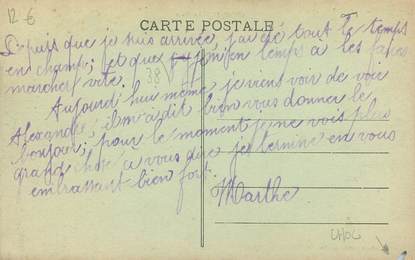 12 €
CARTE POSTALE
Depuis que je suis arrivée, j'ai été tout le temps
en champs; et que temps a les faires
marcher vite. 38
Aujourd'hui même, je viens voir de voir
Alexandre, il m'a dit bien vous donner le
bonjour; pour le moment je ne vois plus
grand chose a vous dire je termine en vous
embrassant bien fort.
Marthe